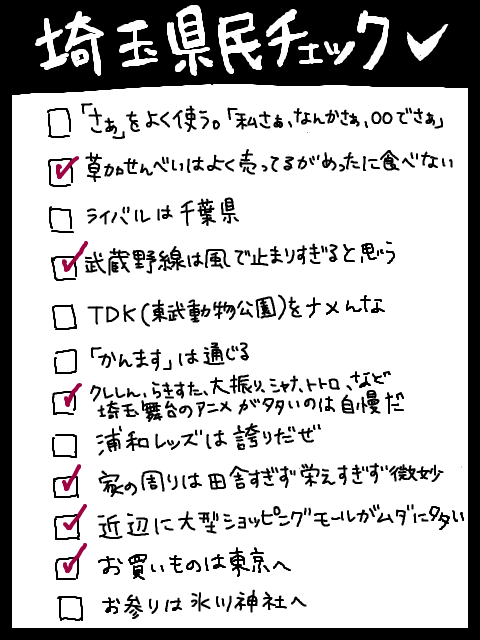 埼玉県民チェック
「さぁ」をよく使う。「私さぁ、なんかさぁ、○○でさぁ」
草加せんべいはよく売ってるがめったに食べない
ライバルは千葉県
武蔵野線は風で止まりすぎると思う
TDK(東武動物公園)をナメんな
「かんます」は通じる
クレしん、らきすた、大振り、シャナ、トトロ、など
埼玉舞台のアニメが多いのは自慢だ
浦和レッズは誇りだぜ
家の周りは田舎すぎず栄えすぎず微妙
近辺に大型ショッピングモールがムダに多い
お買いものは東京へ
お参りは氷川神社へ